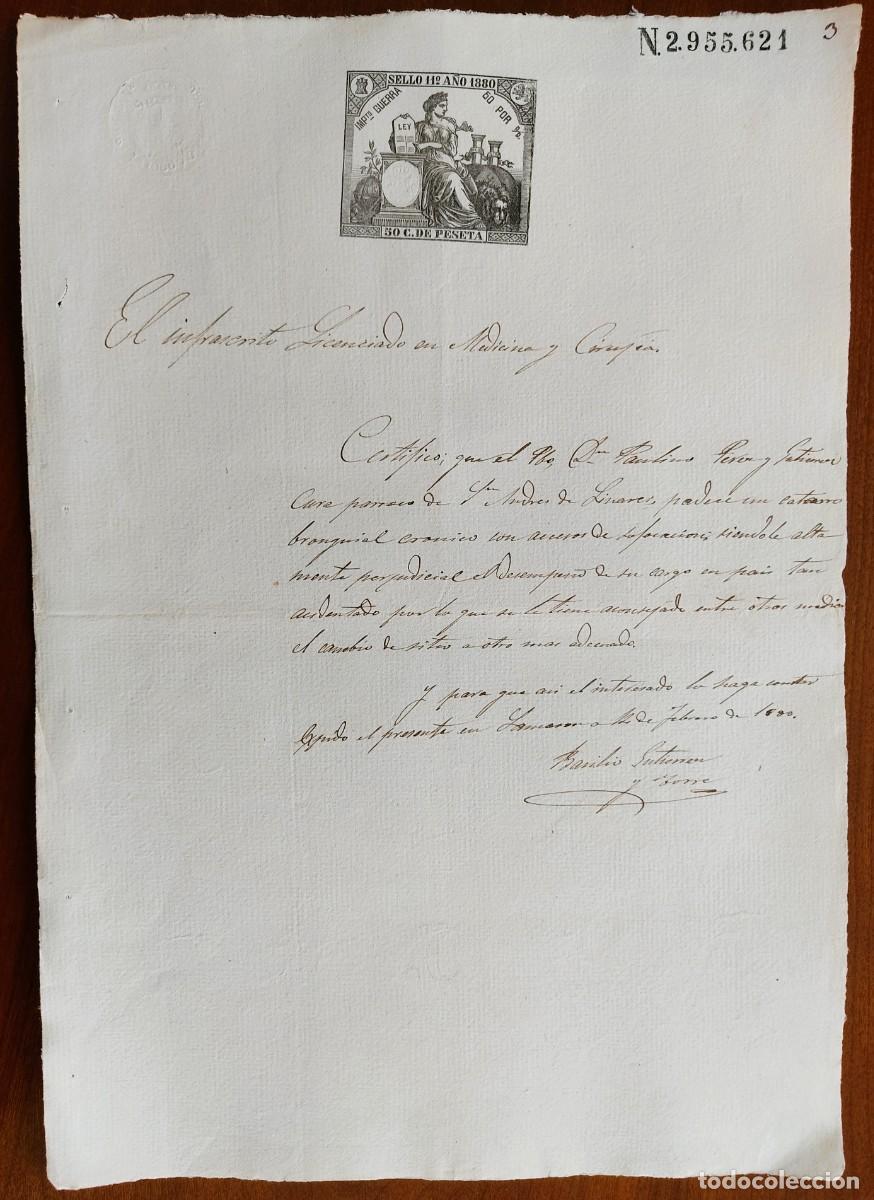 N.2.955.621
3
SELLO 11º AÑO 1880
IMPTO GUERRA
50 POR %
LEY
50 C. DE PESETA
El infrascrito Licenciado en Medicina y Cirujía.
Certifico; que el Pbo, Dn Paulino Perez y Gutierrez
Cura parroco de Sn Andres de Linares, padece un catarro
bronquial cronico con accesos de sofocacion; siendole alta
mente perjudicial el desempeño de su cargo en pais tan
acidentado por lo que se le tiene aconsejado entre otros medios
el cambio de sitio a otro mas adecuado.
Y para que asi el interesado lo haga constar
Expido el presente en a de Febrero de 1880.
Basilio Gutierrez
y Torre
todocoleccion